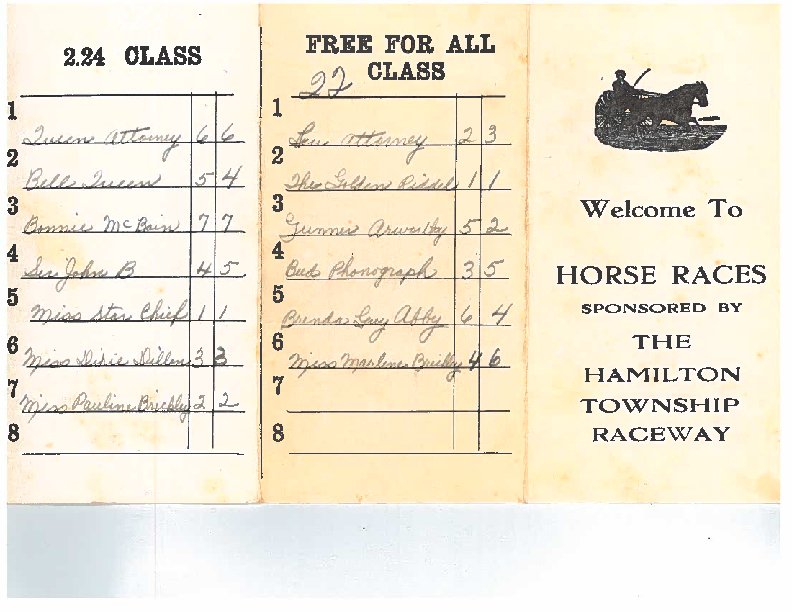 2.24 CLASS
1 Queen Attorney 6 6
2 Belle Queen 5 4
3 Bonnie McBain 7 7
4 Sir John B 4 5
5 Miss Star Chief 1 1
6 Miss Dixie Dillen 3 3
7 Miss Pauline Brickley 2 2
8
FREE FOR ALL
22 CLASS
1 2 3
2 The Golden 1 1
3 Gunner 5 2
4 Buds Phonograph 3 5
5 Brenda Guy Abby 6 4
6 Miss Marlene Brickley 4 6
7
8
Welcome To
HORSE RACES
SPONSORED BY
THE
HAMILTON
TOWNSHIP
RACEWAY